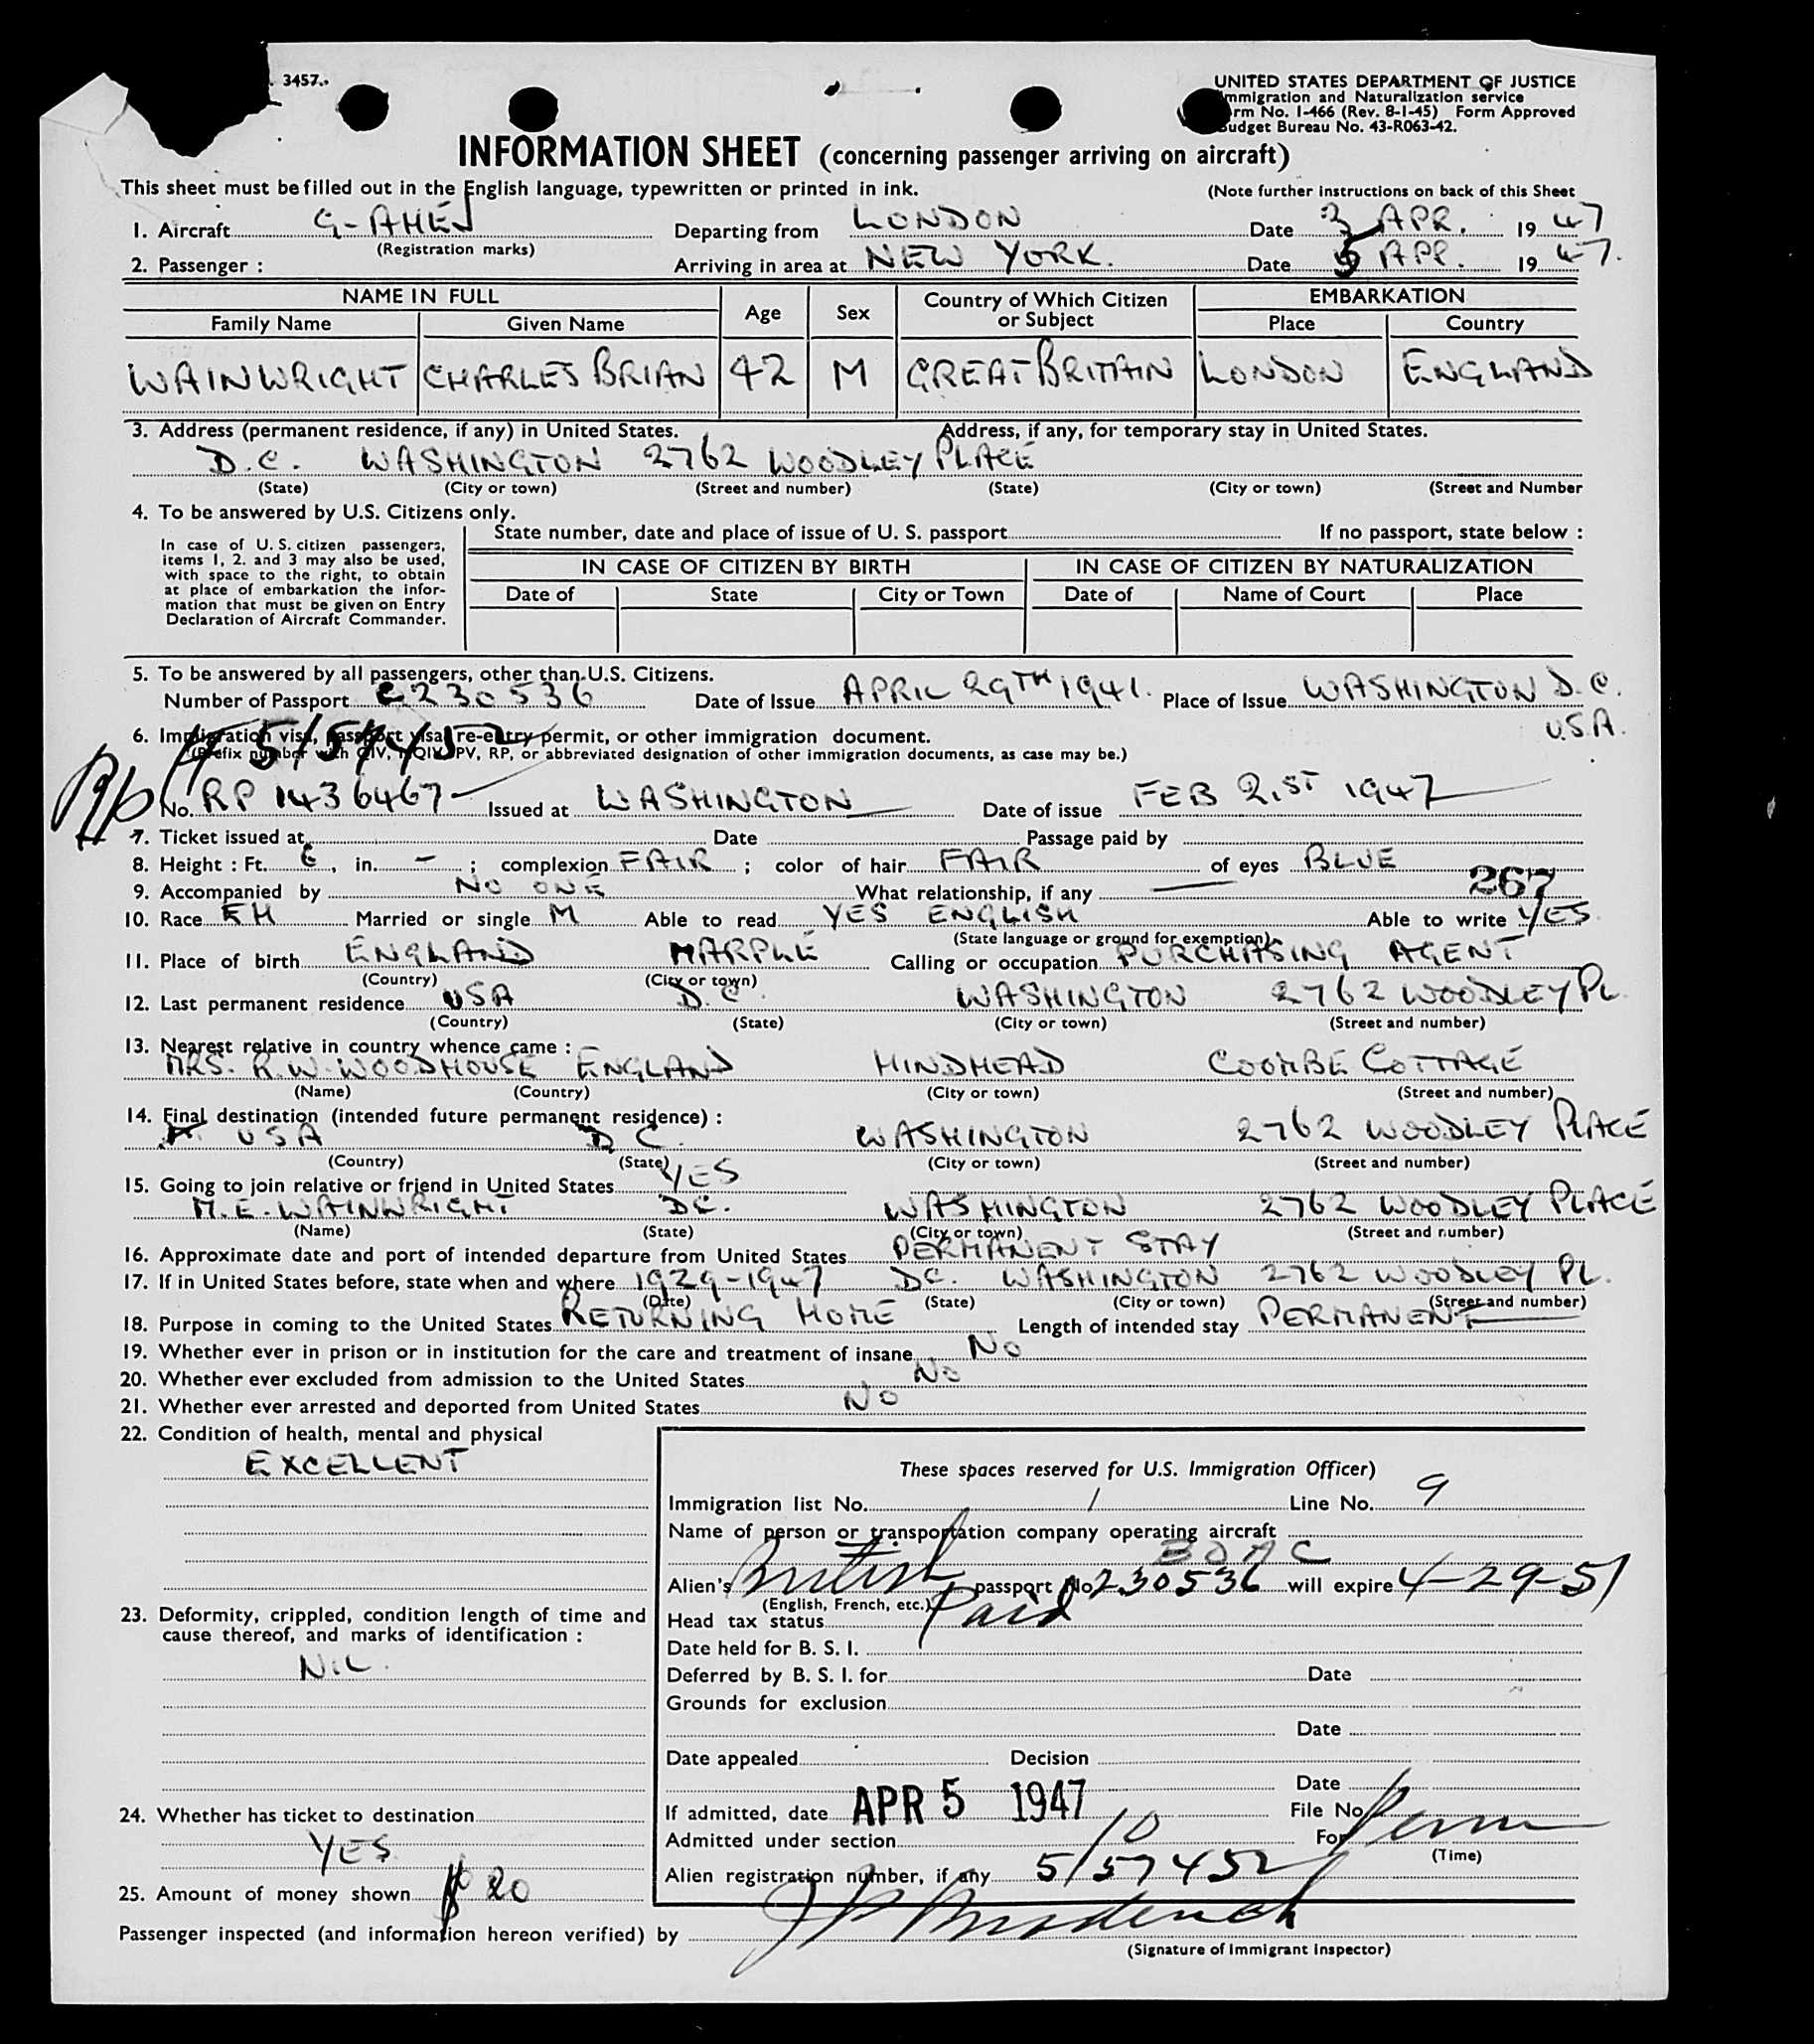 3457.
UNITED STATES DEPARTMENT OF JUSTICE
mmigration and Naturalization service
rm No. I-466 (Rev. 8-1-45) Form Approved
udget Bureau No. 43-R063-42.
INFORMATION SHEET (concerning passenger arriving on aircraft)
This sheet must be filled out in the English language, typewritten or printed in ink. (Note further instructions on back of this Sheet
1. Aircraft G-AHEJ Departing from LONDON Date 3 APR. 19 47
(Registration marks)
2. Passenger : Arriving in area at NEW YORK. Date 5 APR. 19 47.
NAME IN FULL Age Sex Country of Which Citizen or Subject EMBARKATION
Family Name Given Name Place Country
WAINWRIGHT CHARLES BRIAN 42 M GREAT BRITAIN LONDON ENGLAND
3. Address (permanent residence, if any) in United States. Address, if any, for temporary stay in United States.
D.C. WASHINGTON 2762 WOODLEY PLACE
(State) (City or town) (Street and number) (State) (City or town) (Street and Number
4. To be answered by U.S. Citizens only.
State number, date and place of issue of U. S. passport If no passport, state below :
In case of U. S. citizen passengers,
items 1, 2. and 3 may also be used,
with space to the right, to obtain
at place of embarkation the infor-
mation that must be given on Entry
Declaration of Aircraft Commander.
IN CASE OF CITIZEN BY BIRTH IN CASE OF CITIZEN BY NATURALIZATION
Date of State City or Town Date of Name of Court Place
5. To be answered by all passengers, other than U.S. Citizens.
Number of Passport C230536 Date of Issue APRIL 29TH 1941. Place of Issue WASHINGTON D.C.
U.S.A.
6. Immigration visa, passport visa, re-entry permit, or other immigration document.
5157452
(Prefix number with QIV, NQIV, PV, RP, or abbreviated designation of other immigration documents, as case may be.)
R/p
No. RP 1436467 Issued at WASHINGTON Date of issue FEB 21ST 1947
7. Ticket issued at Date Passage paid by
8. Height : Ft. 6, in. - ; complexion FAIR ; color of hair FAIR of eyes BLUE
267
9. Accompanied by NO ONE What relationship, if any
10. Race EH Married or single M Able to read YES ENGLISH Able to write YES
(State language or ground for exemption)
11. Place of birth ENGLAND MARPLE Calling or occupation PURCHASING AGENT
(Country) (City or town)
12. Last permanent residence USA D.C. WASHINGTON 2762 WOODLEY PL.
(Country) (State) (City or town) (Street and number)
13. Nearest relative in country whence came :
MRS. R.W. WOODHOUSE ENGLAND HINDHEAD COOMBE COTTAGE
(Name) (Country) (City or town) (Street and number)
14. Final destination (intended future permanent residence) :
USA D.C. WASHINGTON 2762 WOODLEY PLACE
(Country) (State) (City or town) (Street and number)
15. Going to join relative or friend in United States YES
M.E. WAINWRIGHT DC. WASHINGTON 2762 WOODLEY PLACE
(Name) (State) (City or town) (Street and number)
16. Approximate date and port of intended departure from United States PERMANENT STAY
17. If in United States before, state when and where 1929-1947 DC. WASHINGTON 2762 WOODLEY PL.
(Date) (State) (City or town) (Street and number)
18. Purpose in coming to the United States RETURNING HOME Length of intended stay PERMANENT
19. Whether ever in prison or in institution for the care and treatment of insane NO
20. Whether ever excluded from admission to the United States NO
21. Whether ever arrested and deported from United States NO
22. Condition of health, mental and physical
EXCELLENT
23. Deformity, crippled, condition length of time and
cause thereof, and marks of identification :
NIL.
24. Whether has ticket to destination
YES
25. Amount of money shown $ 20
These spaces reserved for U.S. Immigration Officer)
Immigration list No. 1 Line No. 9
Name of person or transportation company operating aircraft
BOAC
Alien's British passport No 230536 will expire 4-29-51
(English, French, etc.)
Head tax status Paid
Date held for B. S. I.
Deferred by B. S. I. for Date
Grounds for exclusion
Date
Date appealed Decision
Date
If admitted, date APR 5 1947 File No
Admitted under section 10 For Perm
(Time)
Alien registration number, if any 5157452
Passenger inspected (and information hereon verified) by
(Signature of Immigrant Inspector)